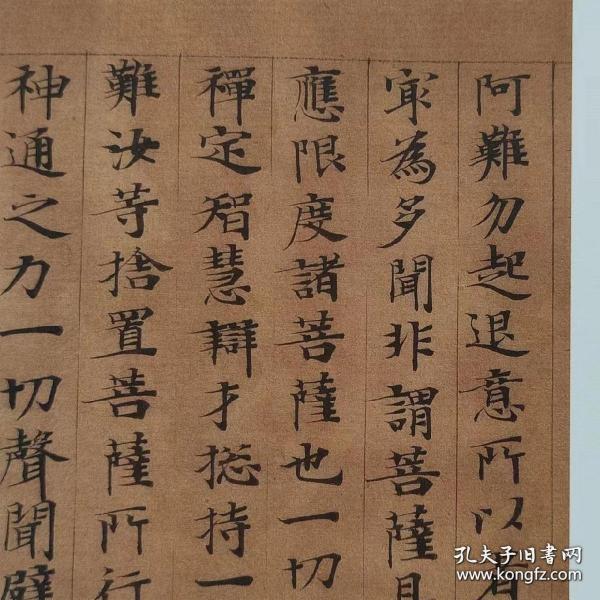 阿難勿起退意所以者
冣為多聞非謂菩薩
應限度諸菩薩也一切
禪定智慧辯才捴持一
難汝等捨置菩薩所行
神通之力一切聲聞辟
孔夫子旧书网
www.kongfz.com